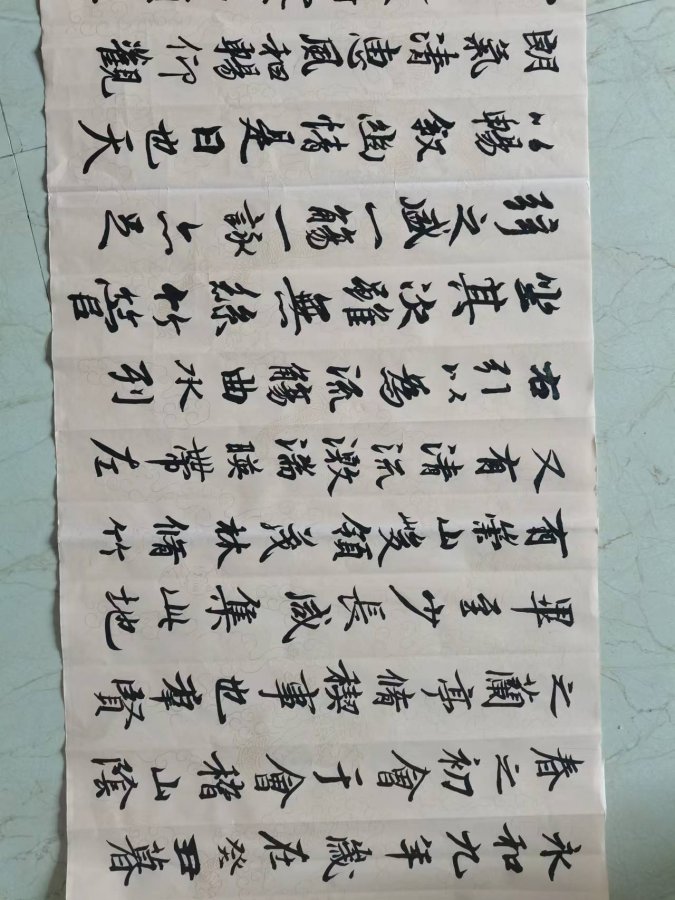 永和九年歲在癸丑暮
春之初會于會稽山陰
之蘭亭脩稧事也羣賢
畢至少長咸集此地
有崇山峻領茂林脩竹
又有清流激湍暎帶左
右引以為流觴曲水列
坐其次雖無絲竹管
弦之盛一觴一詠亦足
以暢敘幽情是日也天
朗氣清惠風和暢仰觀